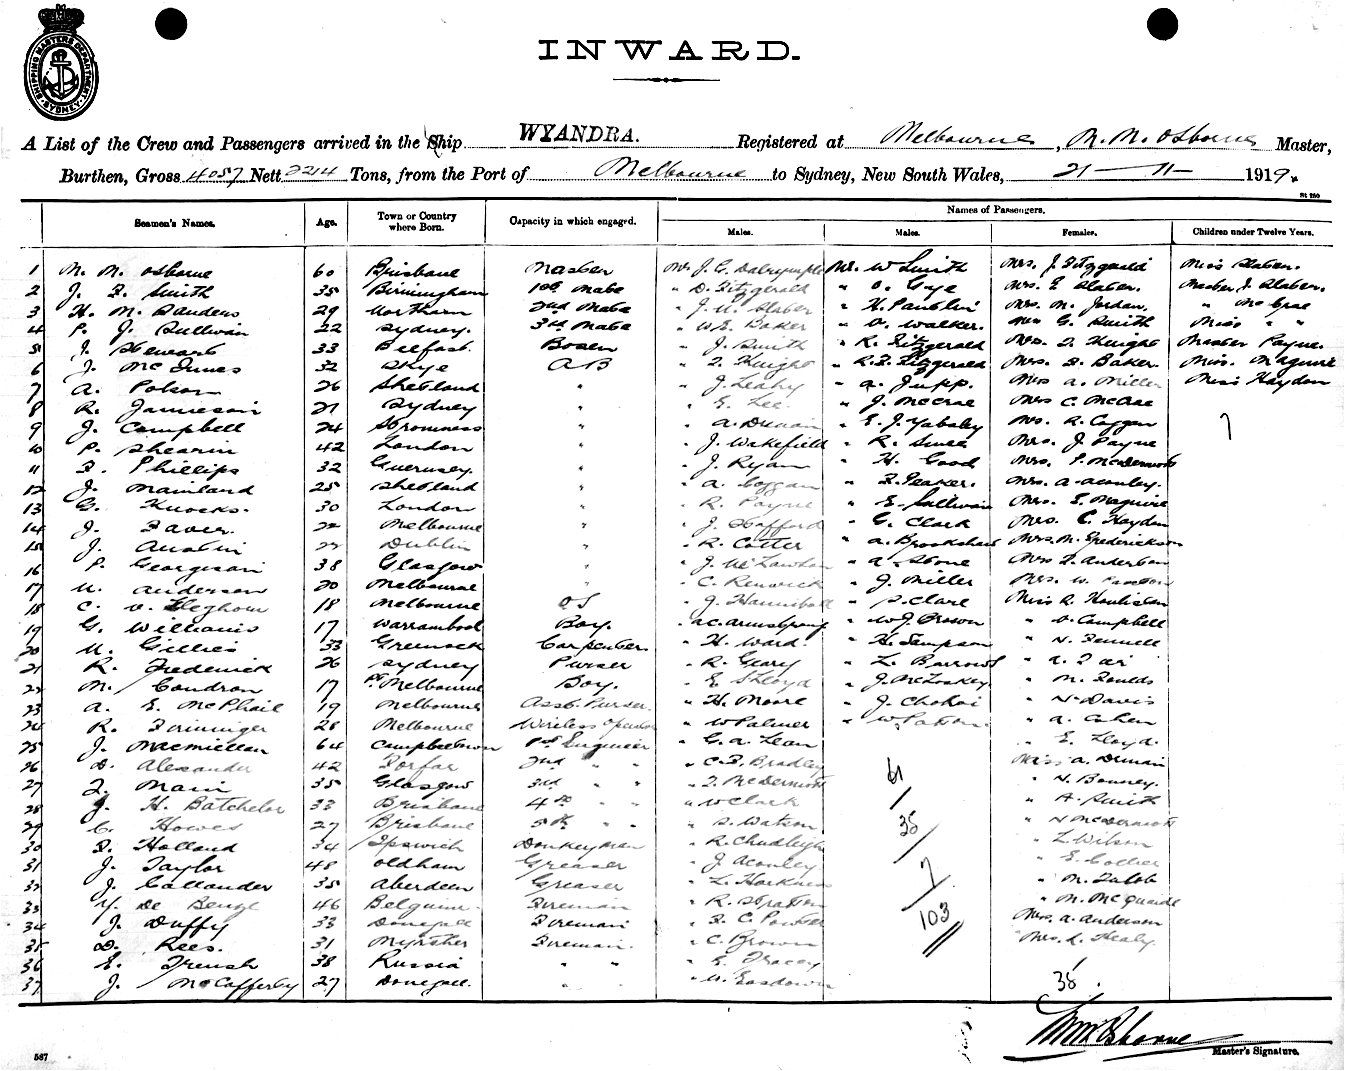 SHIPPING MASTERS DEPARTMENT
SYDNEY
INWARD.
A List of the Crew and Passengers arrived in the Ship WYANDRA. Registered at Melbourne, M. M. Osborne Master,
Burthen, Gross 4057 Nett 2214 Tons, from the Port of Melbourne to Sydney, New South Wales, 21-11-1919.
St 280
Seamen's Names. Age. Town or Country where Born. Capacity in which engaged. Names of Passengers.
Males. Males. Females. Children under Twelve Years.
1 M. M. Osborne 60 Brisbane Master Mr. J. G. Dalrymple Mr. W Smith Mrs. J. Fitzgerald Miss Slaten.
2 J. F. Smith 35 Birmingham 1st Mate " D. Fitzgerald " Gye Mrs. E Slaten. Master J. Slaten.
3 H. M. Saunders 29 2nd Mate " J. W. Slater " H. Mrs. M. Jordan, " McCrae
4 P. J. Sullivan 22 Sydney. 3rd Mate " W. E. Baker " Walker. G. Smith Miss " "
5 J. Stewart 33 Belfast. Bosen " J. Smith " R. Fitzgerald Mrs. F. Knight Master Payne.
6 J. McInnes 32 Skye AB " F. Knight " R. F. Fitzgerald Mrs. F. Baker. Miss. Maguire
7 A. Polson 26 Shetland " " J. Leahy " A. Jupp. Mrs A. Miller Miss Haydon
8 R. Jamieson 21 Sydney " " E. Lee. " J. McCrae Mrs C. McCrae
9 J. Campbell 24 Stromness " " A. " E. J. Yabsley Mrs. A. Coggan 7
10 P. Shearin 42 London " " J. Wakefield " R. Mrs. J. Payne
11 F. Phillips 32 Guernsey. " " J. Ryan " H. Good Mrs. McDermott
12 J. Mainland 25 Shetland " " A. Coggan " F. Peaker. Mrs. A. Aconley.
13 G. 30 London " " R. Payne " E. Sullivan Mrs. E. Maguire
14 J. 22 Melbourne " " J. Stafford " G. Clark Mrs. C. Haydon
15 J. Austin 22 Dublin " " R. Cotter " A. Brookshaw Mrs. M. Frederickson
16 P. Georgeson 38 Glasgow " " J. " A Stone Mrs. Anderton
17 W. Anderson 20 Melbourne " " C. Renwick " J. Miller Mrs. W.
18 C. V. Cleghorn 18 Melbourne OS " J. Hannibal " S. Clare Miss R. Houliston
19 G. Williams 17 Warrambool Boy. " A C. Armstrong " W J. Brown " Campbell
20 W. Gillies 33 Greenock Carpenter " H. Ward. " H. Sampson " N. Fennell
21 R. Frederick 26 Sydney Purser " R. Geary " L. Barrows " A.
22 M. Condron 17 Pt Melbourne Boy. " E. Lloyd " J. McLoskey " M. Foulds
23 A. E. McPhail 19 Melbourne Asst. Purser. " H. Moore " J. " N. Davis
24 R. 28 Melbourne Wireless Operator " W Palmer " W. " A. Cohen
25 J. Macmillan 64 Campbeltown 1st Engineer " G. A. Lean " E. Lloyd.
26 D. Alexander 42 Forfar 2nd " " " C. F. Bradley Miss A.
27 F. Main 35 Glasgow 3rd " " " F. McDermott 61 " N. Bonney.
28 J. H. Batchelor 33 Brisbane 4th " " " W Clark " A. Smith
29 C. Howes 27 Brisbane 5th " " " S. Watson 35 " N McDermott
30 F. Holland 34 Ipswich Donkeyman " R. Chudleigh " L. Wilson
31 J. Taylor 48 Oldham Greaser " J. Aconley " E. Collier
32 J. Callander 35 Aberdeen Greaser " L. Harkness 7 " M.
33 De 46 Belgium. Fireman " R. Stratton " M.
34 J. Duffy 33 Donegall Fireman " F. C. 103 Mrs. A. Anderson
35 D. Rees. 31 Fireman. " C. Brown Mrs. L. Healy.
36 E. French 38 Russia " " " E. Tracey
37 J. McCafferty 27 Donegall. " " " W. 35.
M M Osborne
Master's Signature.
587